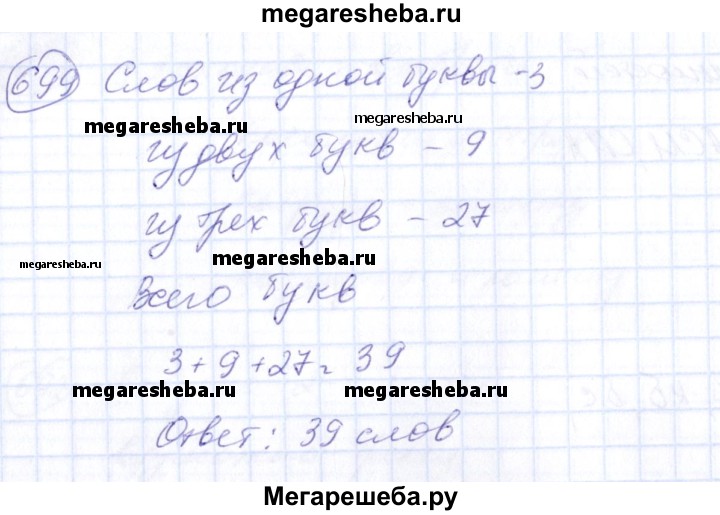 megaresheba.ru
699 Слов из одной буквы - 3
megaresheba.ru megaresheba.ru
из двух букв - 9
из трех букв - 27
megaresheba.ru megaresheba.ru
Всего букв
3 + 9 + 27 = 39
megaresheba.ru megaresheba.ru
Ответ: 39 слов
Мегарешеба.ру